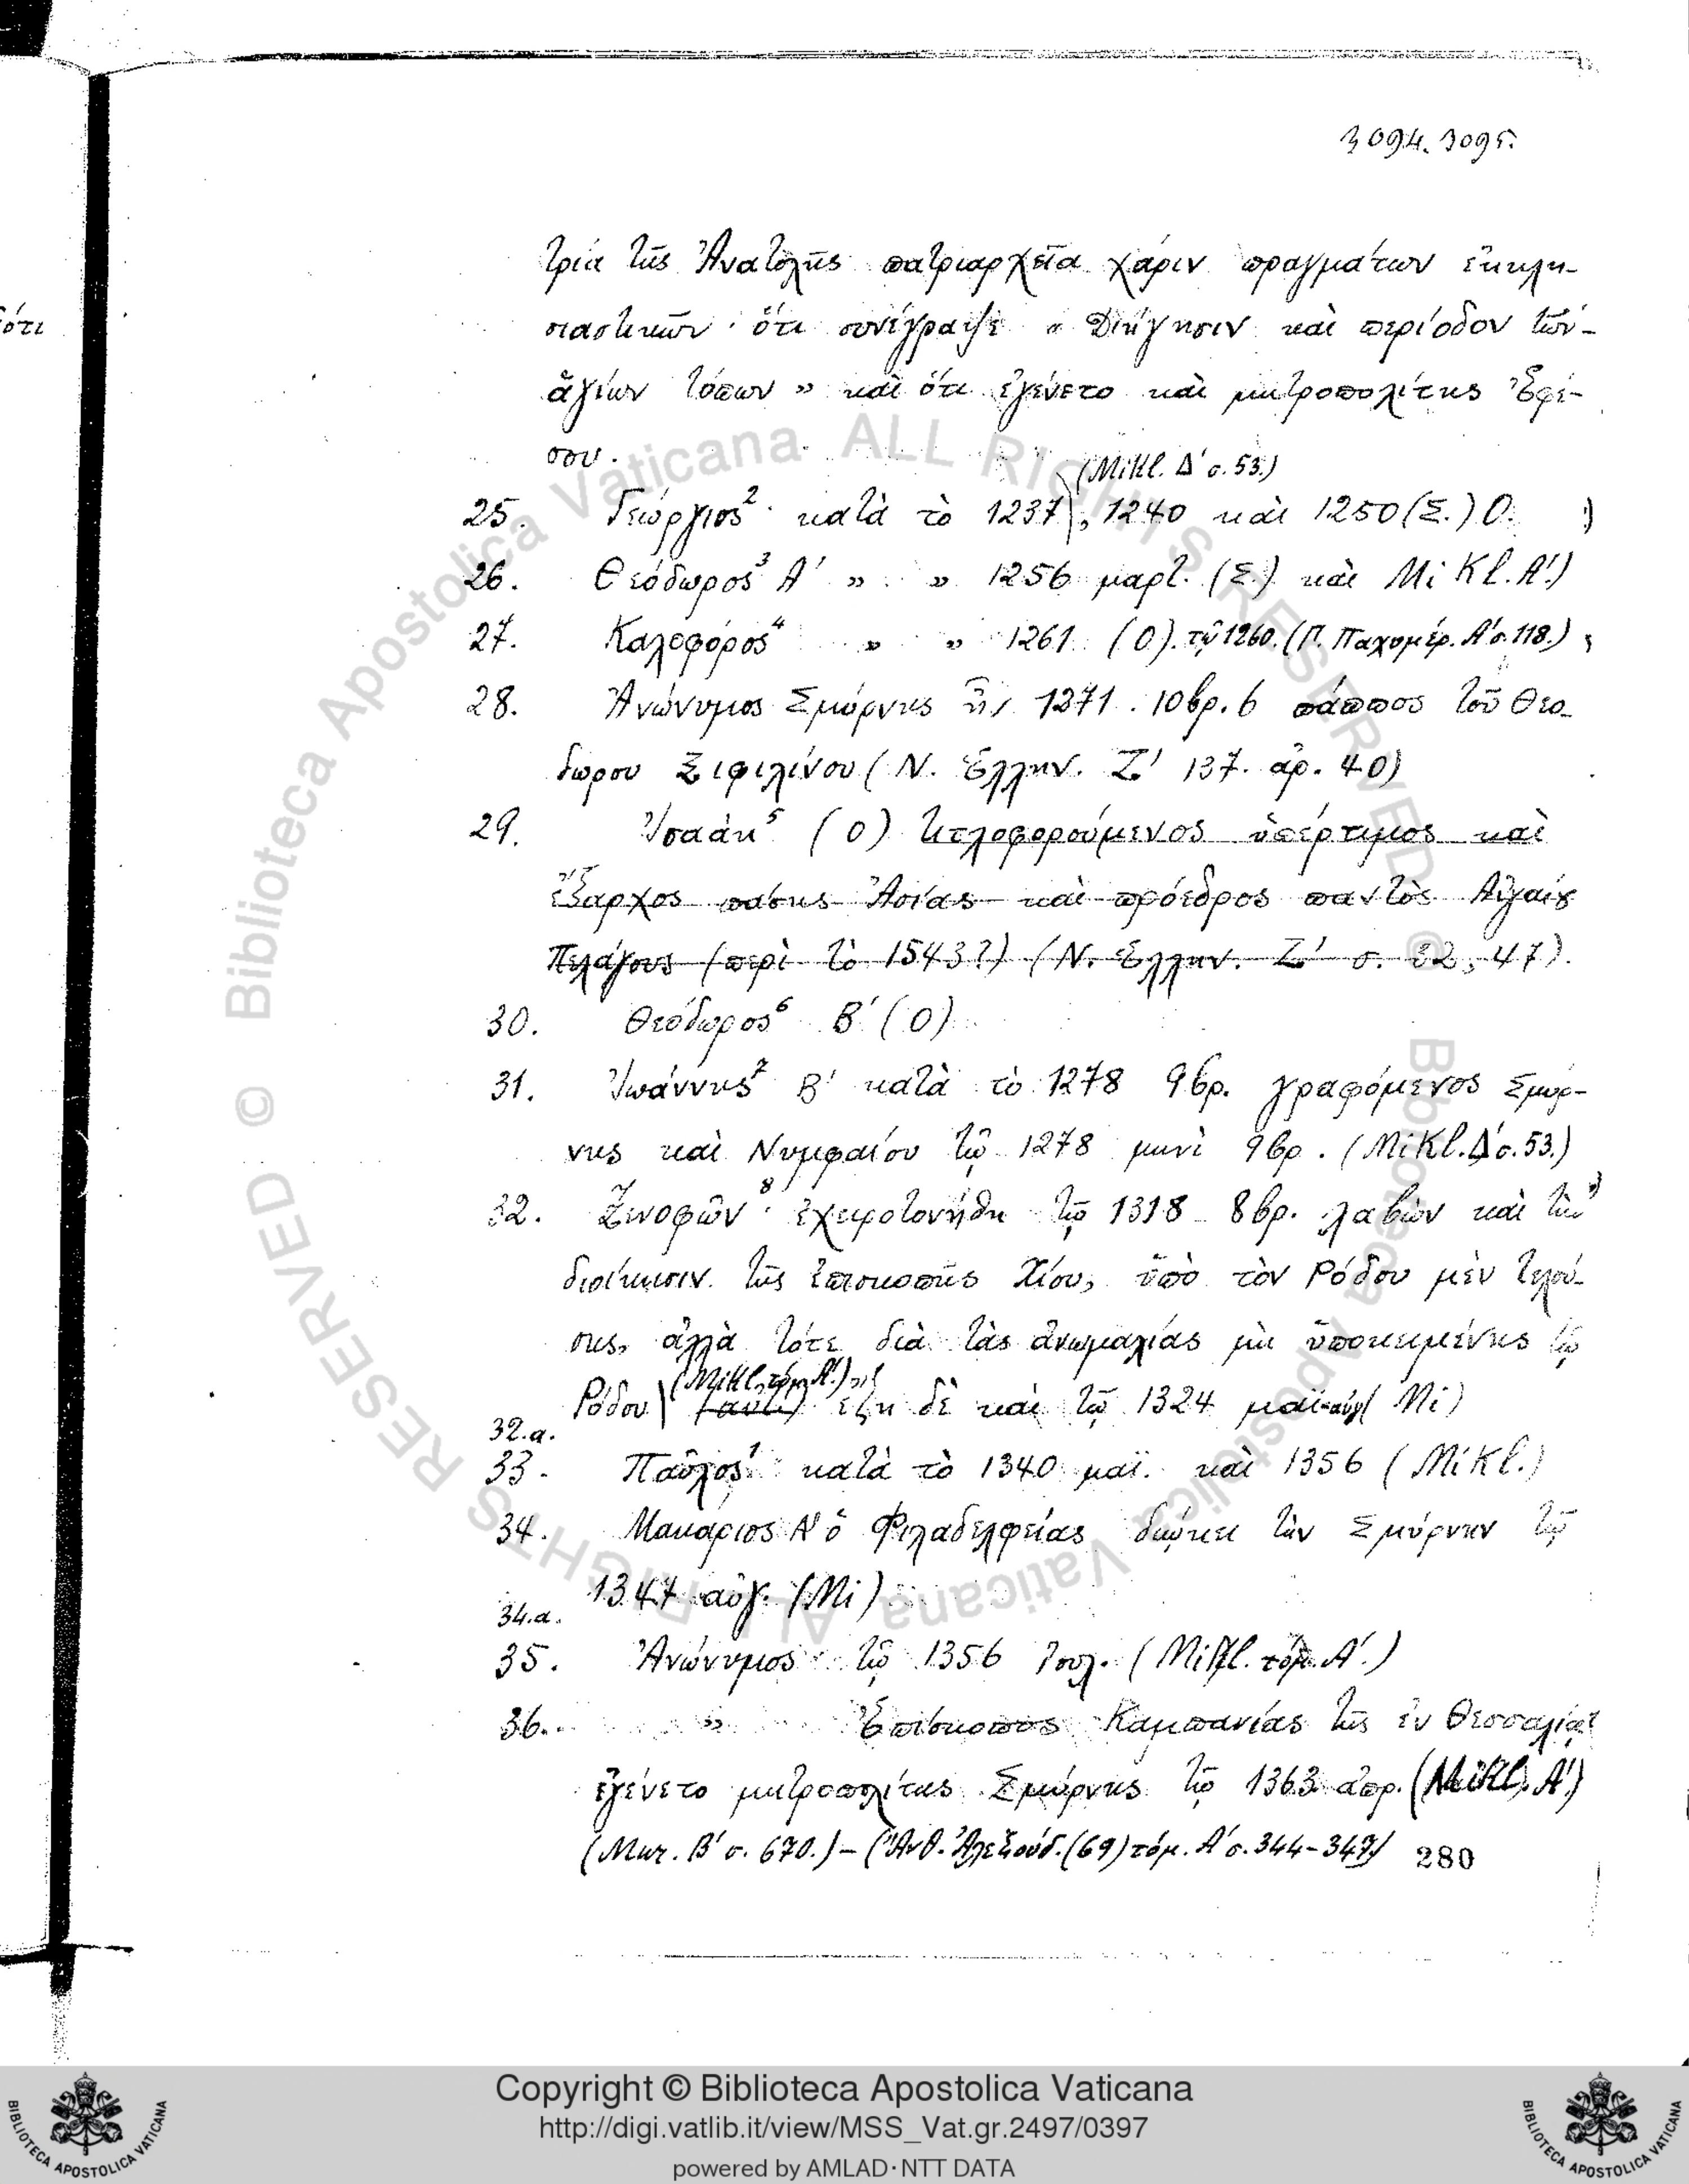 3094. 3095.
ότι
τρία τῆς Ἀνατολῆς πατριαρχεῖα χάριν πραγμάτων ἐκκλη-
σιαστικῶν · ὅτι συνέγραψε « Διήγησιν καὶ περίοδον τῶν-
ἁγίων τόπων » καὶ ὅτι ἐγένετο καὶ μητροπολίτης Ἐφέ-
σου.
(Mikl. Δ' σ. 53.)
25. Γεώργιος² κατὰ τὸ 1237, 1240 καὶ 1250 (Σ.) Ο.
26. Θεόδωρος³ Α' » » 1256 μαρτ. (Σ.) καὶ Mikl. Α'.)
27. Καλοφόρος⁴ » » 1261 (Ο). τῷ 1260. (Γ. Παχυμέρ. Α' σ. 118.)
28. Ἀνώνυμος Σμύρνης 1271. 10βρ. 6 πάππος τοῦ Θεο-
δώρου Ξιφιλίνου (Ν. Ἑλλην. Ζ' 137. ἀρ. 40)
29. Ἰσαάκ⁵ (Ο) κτλοφορούμενος ὑπέρτιμος καὶ
ἔξαρχος πάσης Ἀσίας καὶ πρόεδρος παντὸς Αἰγαίου
Πελάγους (περὶ τὸ 1543?) (Ν. Ἑλλην. Ζ' σ. 32, 47).
30. Θεόδωρος⁶ Β' (Ο)
31. Ἰωάννης⁷ Β' κατὰ τὸ 1278 9βρ. γραφόμενος Σμύρ-
νης καὶ Νυμφαίου τῷ 1278 μηνὶ 9βρ. (Mikl. Δ' σ. 53.)
32. Ξενοφῶν⁸ · ἐχειροτονήθη τῷ 1318 8βρ. λαβὼν καὶ τὴν
διοίκησιν τῆς ἐπισκοπῆς Χίου, ὑπὸ τὸν Ρόδου μὲν τελού-
σης, ἀλλὰ τότε διὰ τὰς ἀνωμαλίας μὴ ὑποκειμένης τῷ
(Mikl. τόμ. Α'.)
Ρόδου (αὐτ.) ἔζη δὲ καὶ τῷ 1324 μαϊ-αὐγ (Mi)
32.α.
33. Παῦλος¹ κατὰ τὸ 1340 μαϊ. καὶ 1356 (Mikl.)
34. Μακάριος Α' ὁ Φιλαδελφείας διῴκει τὴν Σμύρνην τῷ
1347 αὐγ. (Mi)
34.α.
35. Ἀνώνυμος τῷ 1356 Ἰουλ. (Mikl. τόμ. Α'.)
36. » Ἐπίσκοπος Καμπανίας τῆς ἐν Θεσσαλίᾳ
ἐγένετο μητροπολίτης Σμύρνης τῷ 1363 ἀπρ. (Mikl. Α'.)
(Μικ. Β' σ. 670.) – (Ἀνθ. Ἀλεξούδ. (69) τόμ. Α' σ. 344-347)
280
Biblioteca Apostolica Vaticana ALL RIGHTS RESERVED ©
Copyright © Biblioteca Apostolica Vaticana
http://digi.vatlib.it/view/MSS_Vat.gr.2497/0397
powered by AMLAD·NTT DATA
BIBLIOTECA APOSTOLICA VATICANA
BIBLIOTECA APOSTOLICA VATICANA